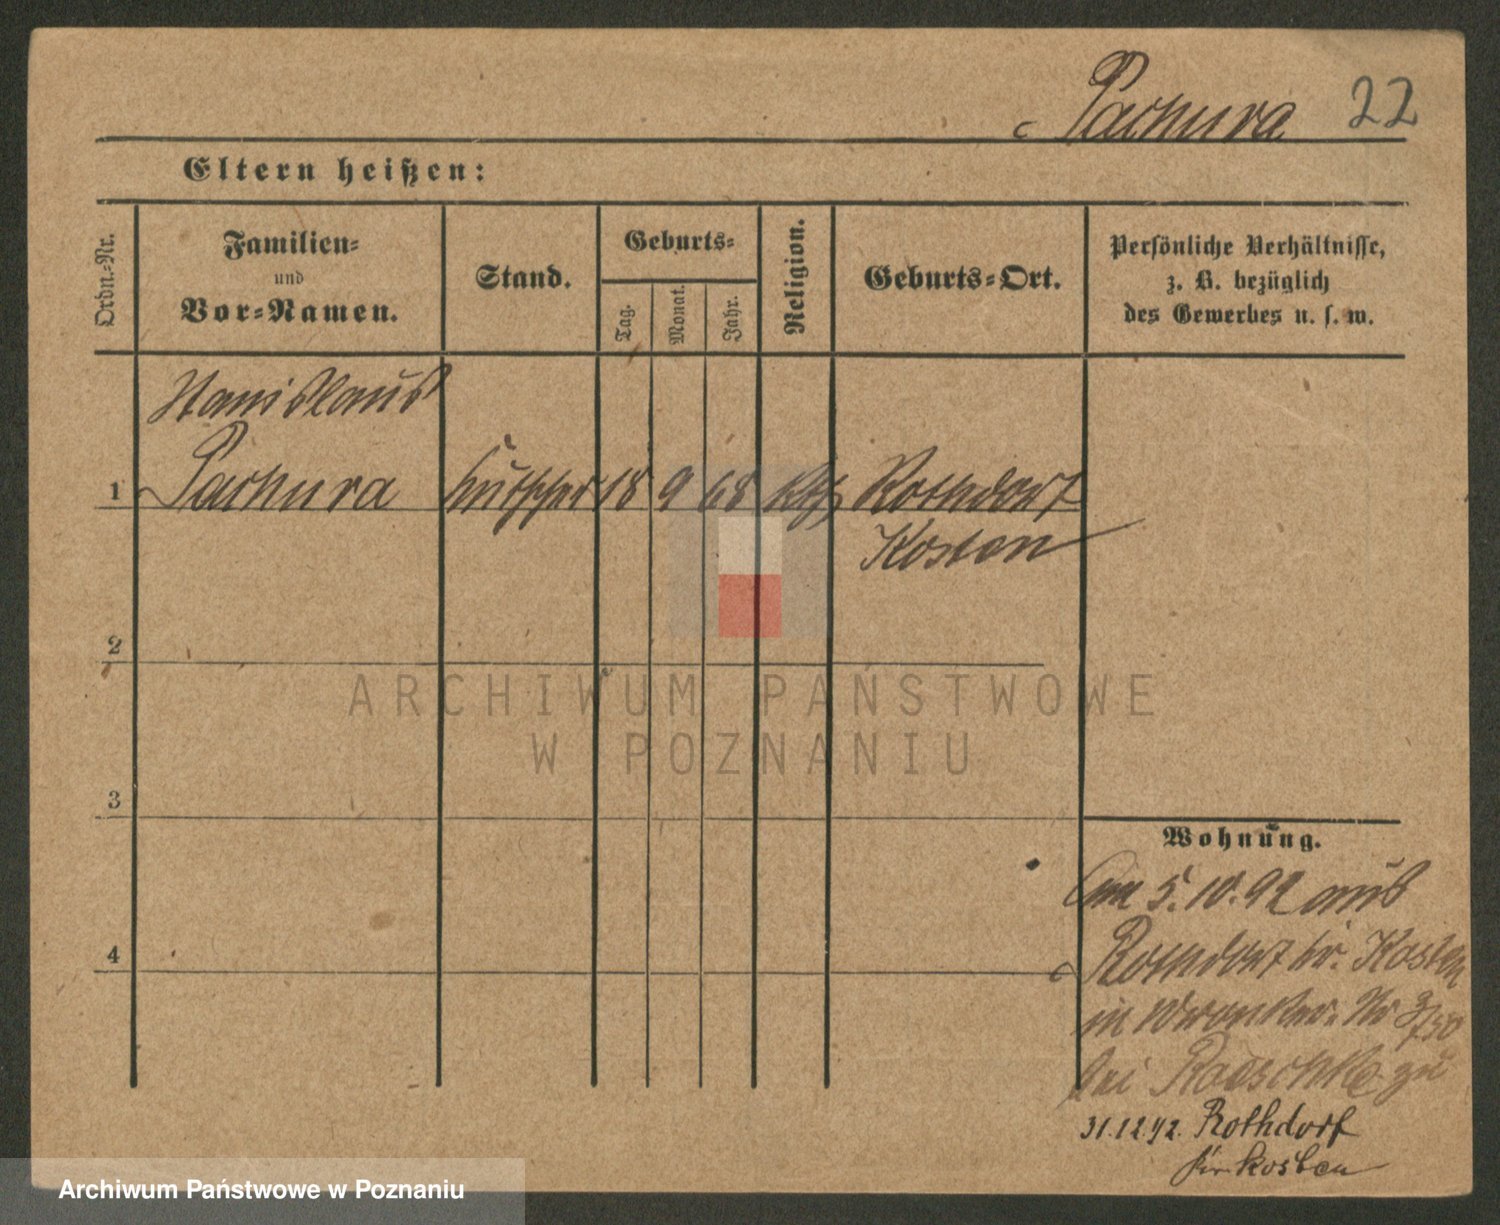 Pachura 22
Eltern heißen:
Ordn.-Nr.
Familien-
und
Vor-Namen.
Stand.
Geburts-
Tag.
Monat.
Jahr.
Religion.
Geburts-Ort.
Persönliche Verhältnisse,
z. B. bezüglich
des Gewerbes u. s. w.
Stanislaus
1 Pachura 18 9 68 Kth Rothdorf
Kosten
2
3
4
ARCHIWUM PAŃSTWOWE
W POZNANIU
Wohnung.
Am 5.10.92 aus
Rothdorf Kr. Kosten
in Wronker- Nr
bei zu
31.12.92. Rothdorf
Kr. Kosten
Archiwum Państwowe w Poznaniu